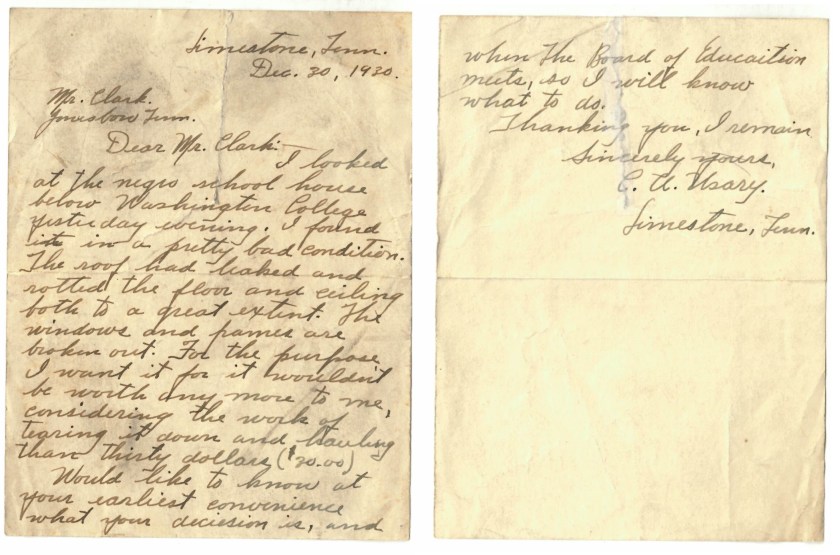 Limestone, Tenn.
Dec. 30, 1930.
Mr. Clark.
Jonesboro Tenn.
Dear Mr. Clark:
I looked
at the negro school house
below Washington College
yesterday evening. I found
it in a pretty bad condition.
The roof had leaked and
rotted the floor and ceiling
both to a great extent. The
windows and frames are
broken out. For the purpose
I want it for it wouldn't
be worth any more to me,
considering the work of
tearing it down and hauling
than thirty dollars ($30.00)
Would like to know at
your earliest convenience
what your deciesion is, and
when the Board of Educaition
meets, so I will know
what to do.
Thanking you, I remain
Sincerely yours,
C. A. Usary.
Limestone, Tenn.